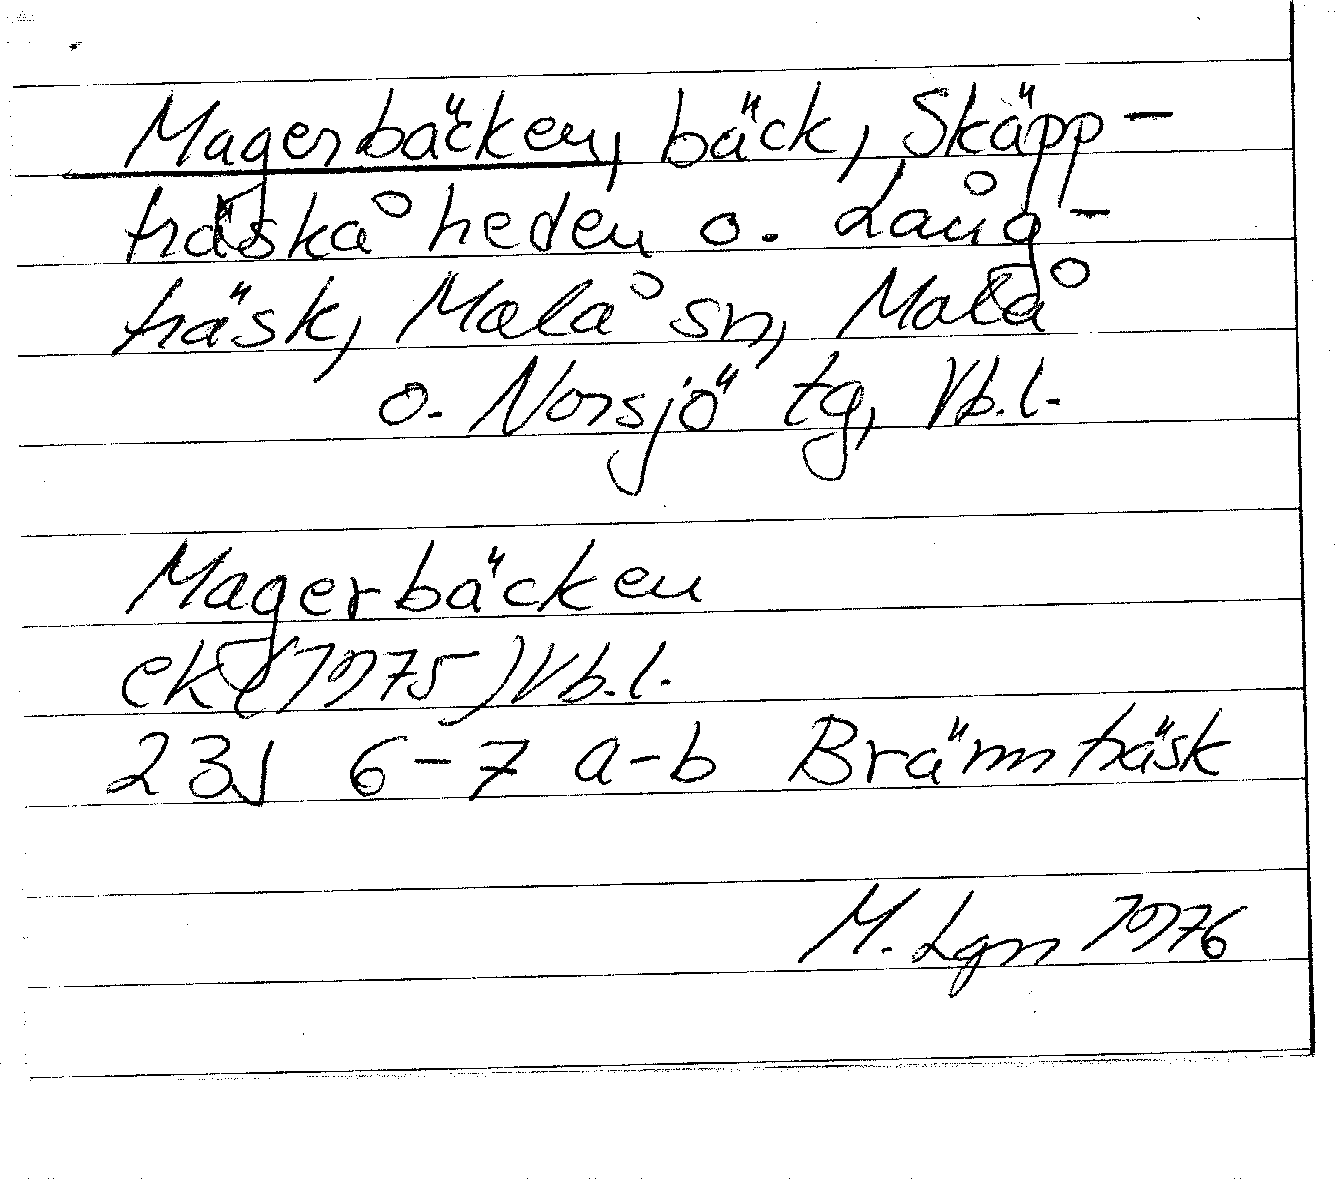 Magerbäcken, bäck, Skäpp-
träskåheden o. Lång-
träsk, Malå sn, Malå
o. Norsjö tg, Vb.l.
Magerbäcken
ek (1975) Vb.l.
23J 6-7 a-b Brännträsk
M. Lgn 1976